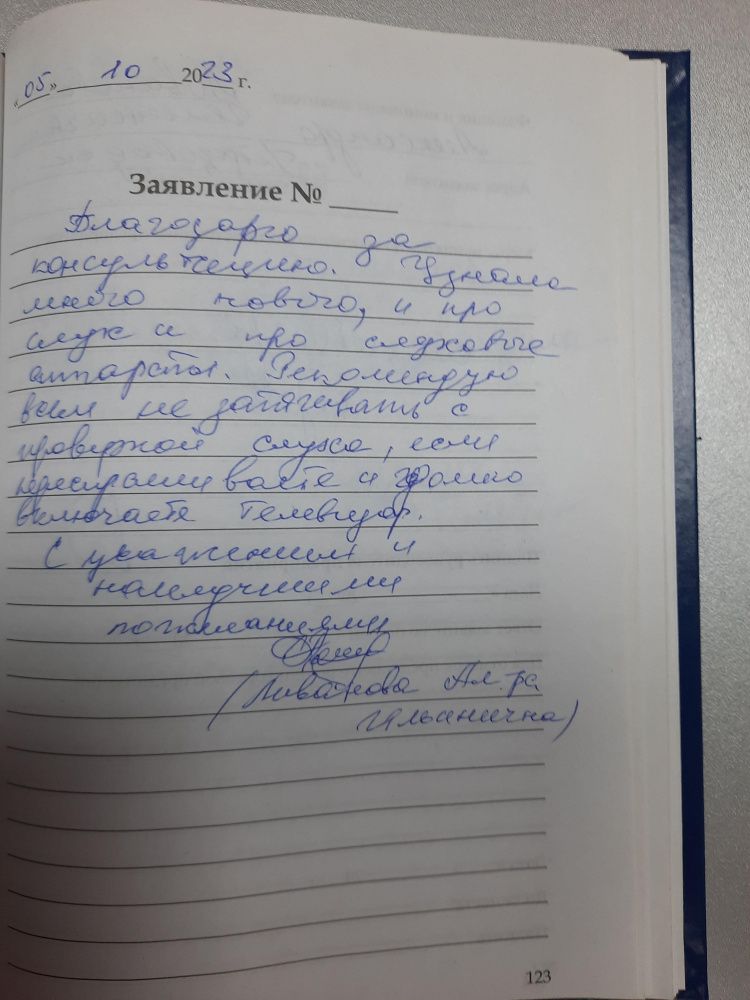 «05» 10 2023 г.
Заявление № ____
Благодарю за
консультацию. Узнала
много нового, и про
слух и про слуховые
аппараты. Рекомендую
всем не затягивать с
проверкой слуха, если
переспрашиваете и громко
включаете телевизор.
С уважением и
наилучшими
пожеланиями
(Ливанова Ал-ра
Ильинична)
123